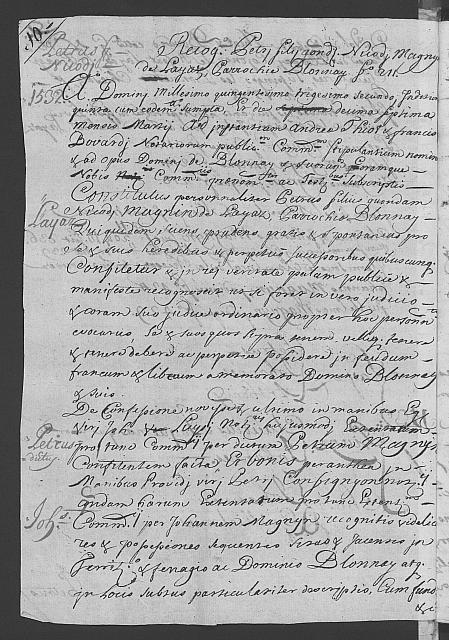 10.
Petrus Nicodj
Recog. Petrj filij condj. Nicodj Magnyn
de Layaz, Parrochie Blonnay. fo.
1532. A. Dominj Millesimo quingentesimo trigesimo Secundo, Indictione
quinta cum eodem sumpta, Et die decima Septima
mensis Martij Ad instantiam Andree Thiot & francisci
Bovardj Notariorum publicorum Comm. stipulantium nomine
& ad opus Dominj de Blonnay & Suorum
Nobis Comm. ac Testibus Subscriptis
Constitutus personaliter Petrus filius quondam
Layaz
Nicodj Magnin de Layaz, Parrochie Blonnay
Qui quidem, sciens, prudens, gratis & spontaneus pro
se & suis heredibus & perpetuis successoribus quibuscunq.
Confitetur & in rej veritate palam publice &
manifeste recognoscit ac si foret in vero judicio
& coram suo judice ordinario propter hoc personaliter
evocatus, Se & suos quos supra tenere, velle, tenere
& tenere debere ac perpetue possidere in feudum
francum & liberum a memorato Domino Blonnay
& suis.
De Confessione novissime & ultimo in manibus
virj Joh. Layaz Not.
Petrus dictus
pro tunc Comm. per dictum Petrum Magnyn
Confitentem facta, Et bonis per antea in
Manibus Providj virj Petrj
quondam harum Extentarum pro tunc
Joh.
Comm. per Johannem Magnyn recognitis videlicet
res & possessiones sequentes Sitas & Jacentes in
Territ. & fenagio de Dominio Blonnay atq.
in locis subtus particulariter descriptis, Cum fundo
&c